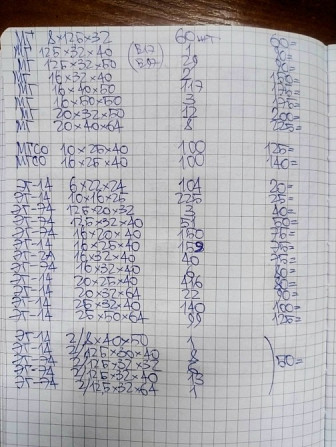 МГ 8×125×32 60 шт. 60=
МГ 125×32×40 (В12) 1 80=
МГ 125×32×50 29 90=
МГ 16×32×40 2 150=
МГ 16×40×50 117 175=
МГ 16×50×50 3 175=
МГ 20×32×50 12 200=
МГ 20×40×64 8 225=
МГСО 10×25×40 100 125=
МГСО 16×25×40 100 140=
ЭГ-14 6×22×24 104 20=
ЭГ-14 10×16×25 225 25=
ЭГ-74 125×20×32 3 40=
ЭГ-74 125×32×40 51 50=
ЭГ-14 16×20×40 150 75=
ЭГ-14 16×25×40 159 75=
16×32×40 40 75=
16×32×40 80=
ЭГ-14 20×25×40 416 80=
ЭГ-14 20×32×64 22 90=
ЭГ-14 25×32×40 140 100=
ЭГ-14 25×50×64 99 125=
ЭГ-14 2/8×40×50 1
2/125×30×40 8
2/125×32×32
2/125×32×40 13 50=
ЭГ-74 2/125×32×64 1